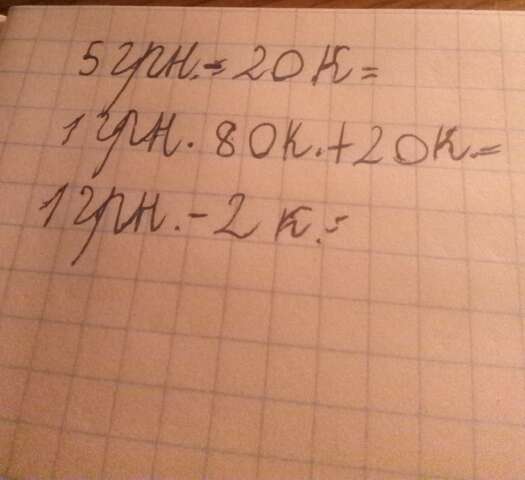 5 грн. - 20 к =
1 грн. 80 к. + 20 к. =
1 грн. - 2 к. =